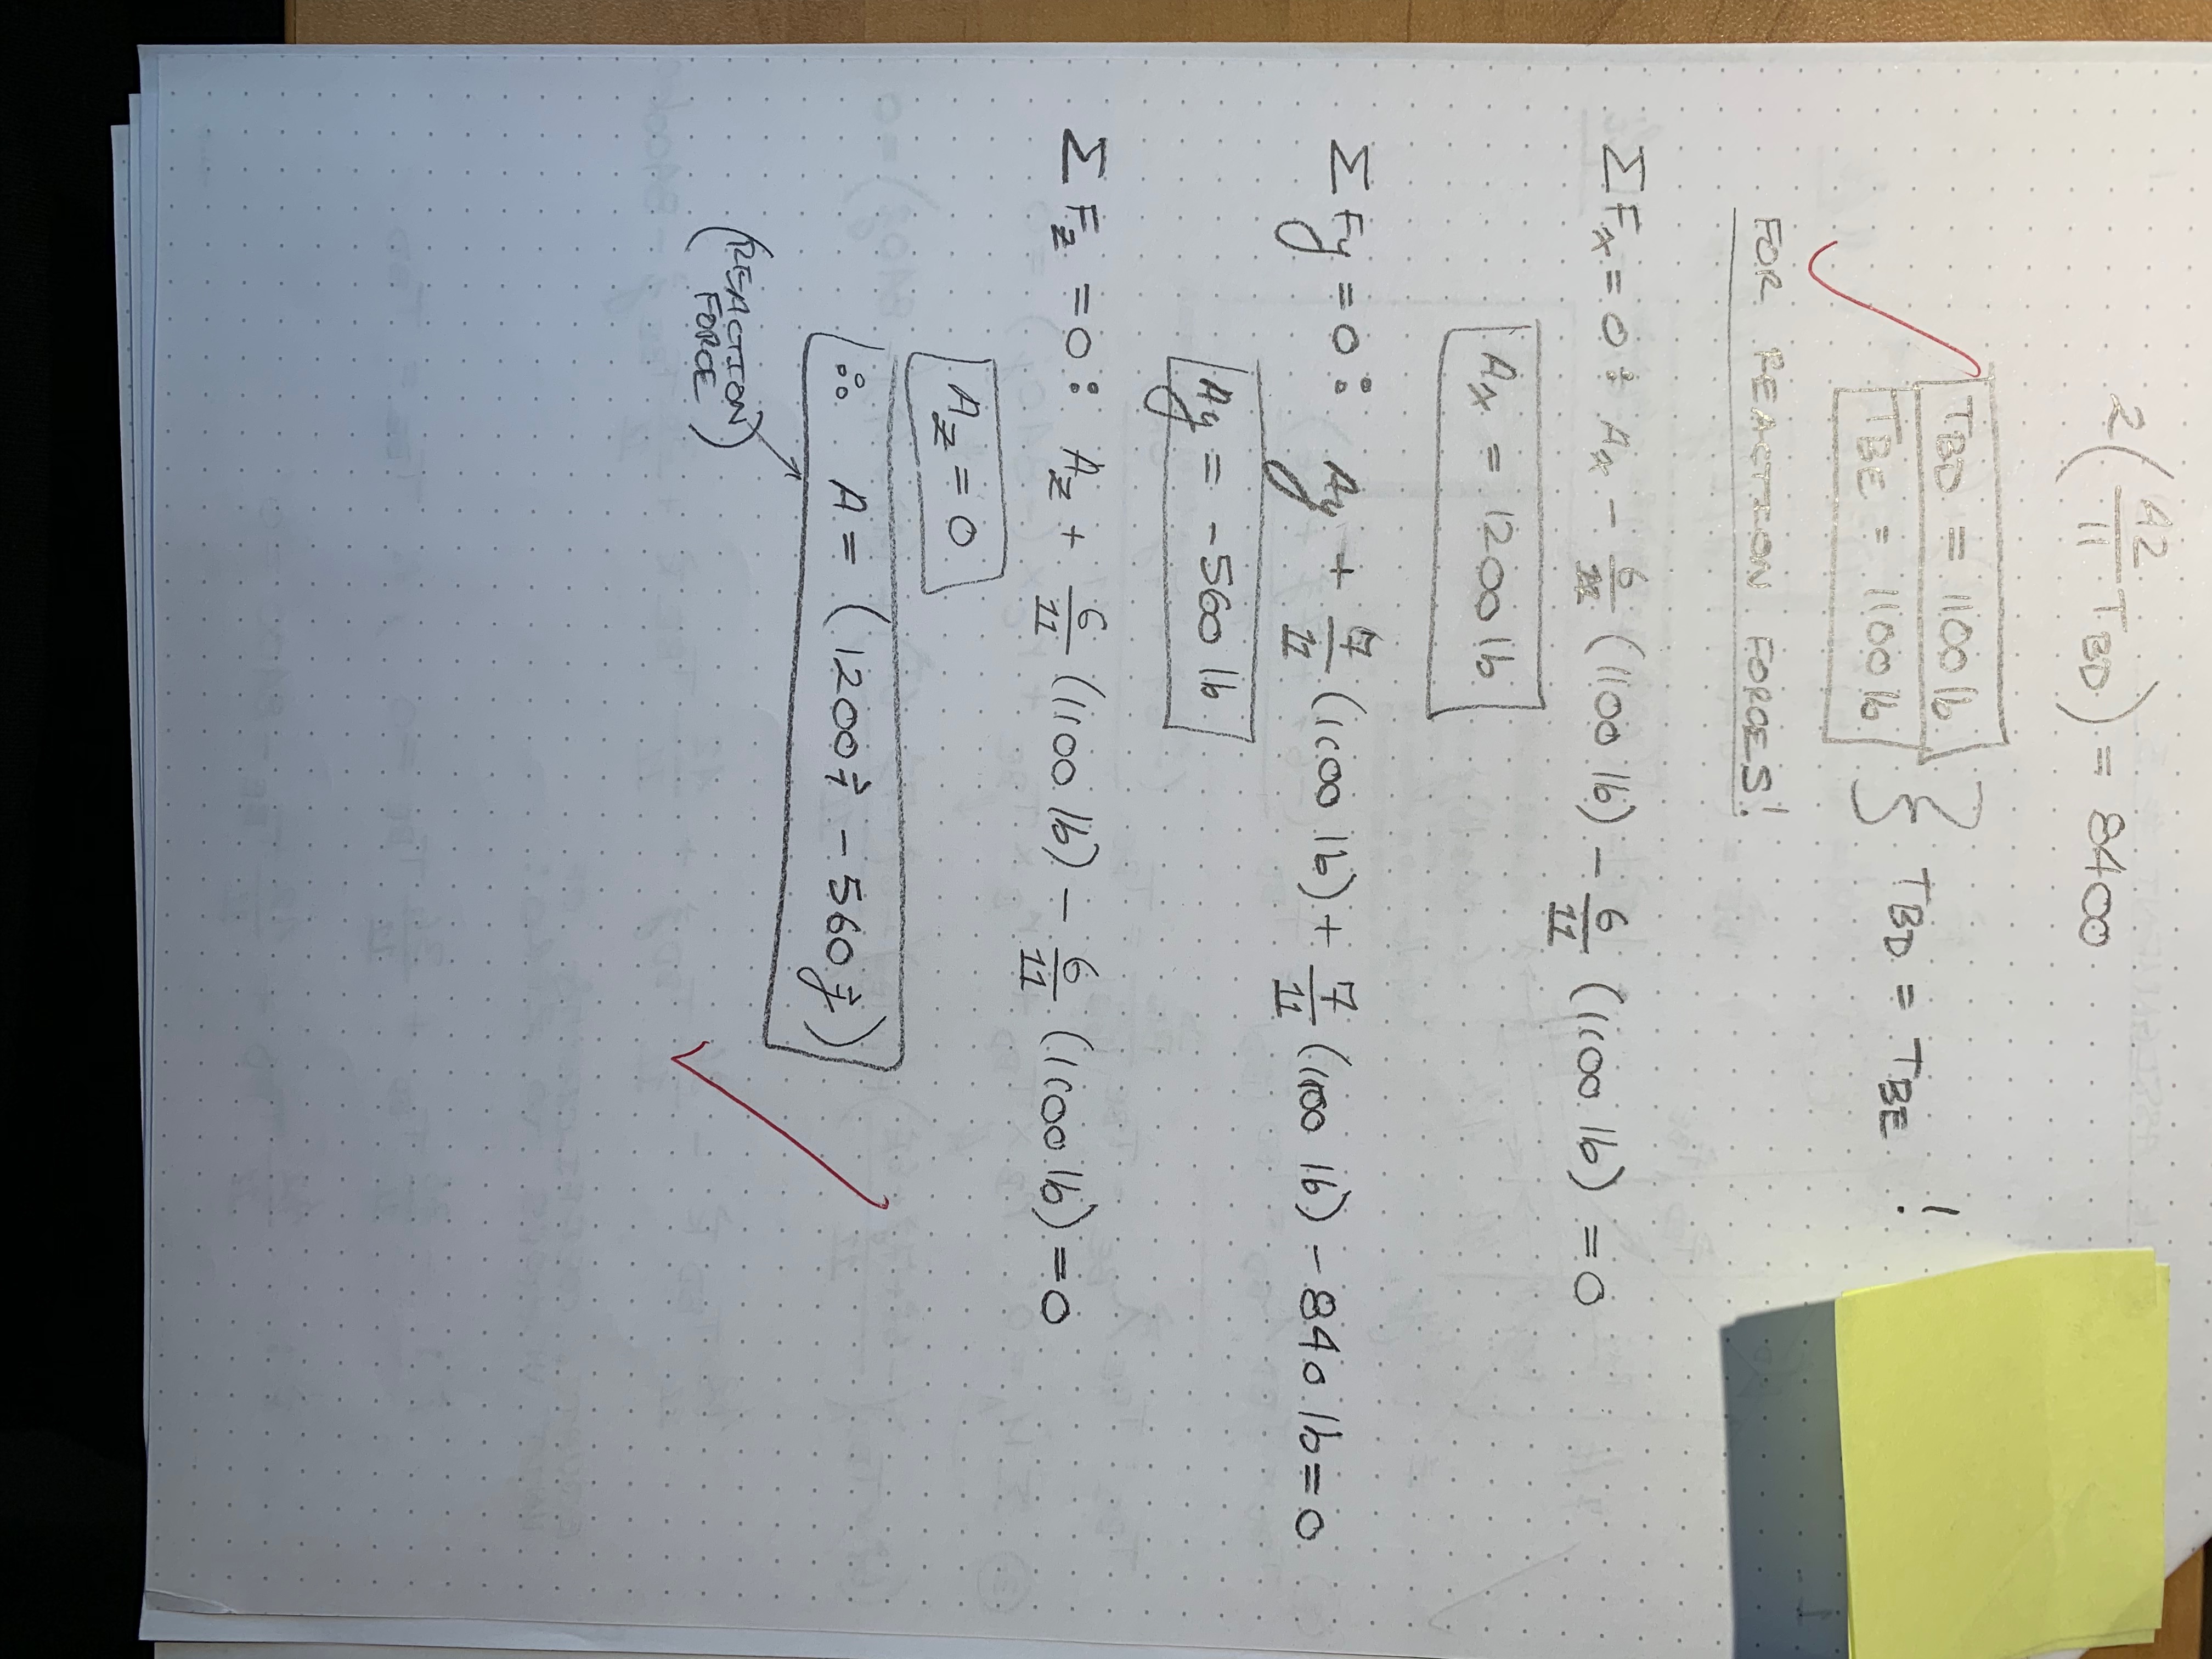 2(42/11 TBD) = 8400
TBD = 1100 lb
TBE = 1100 lb } TBD = TBE !
FOR REACTION FORCES!
ΣFx = 0: Ax - 6/11 (1100 lb) - 6/11 (1100 lb) = 0
Ax = 1200 lb
ΣFy = 0: Ay + 7/11 (1100 lb) + 7/11 (1100 lb) - 840 lb = 0
Ay = -560 lb
ΣFz = 0: Az + 6/11 (1100 lb) - 6/11 (1100 lb) = 0
Az = 0
∴ A = (1200 î - 560 ĵ)
(REACTION
FORCE)